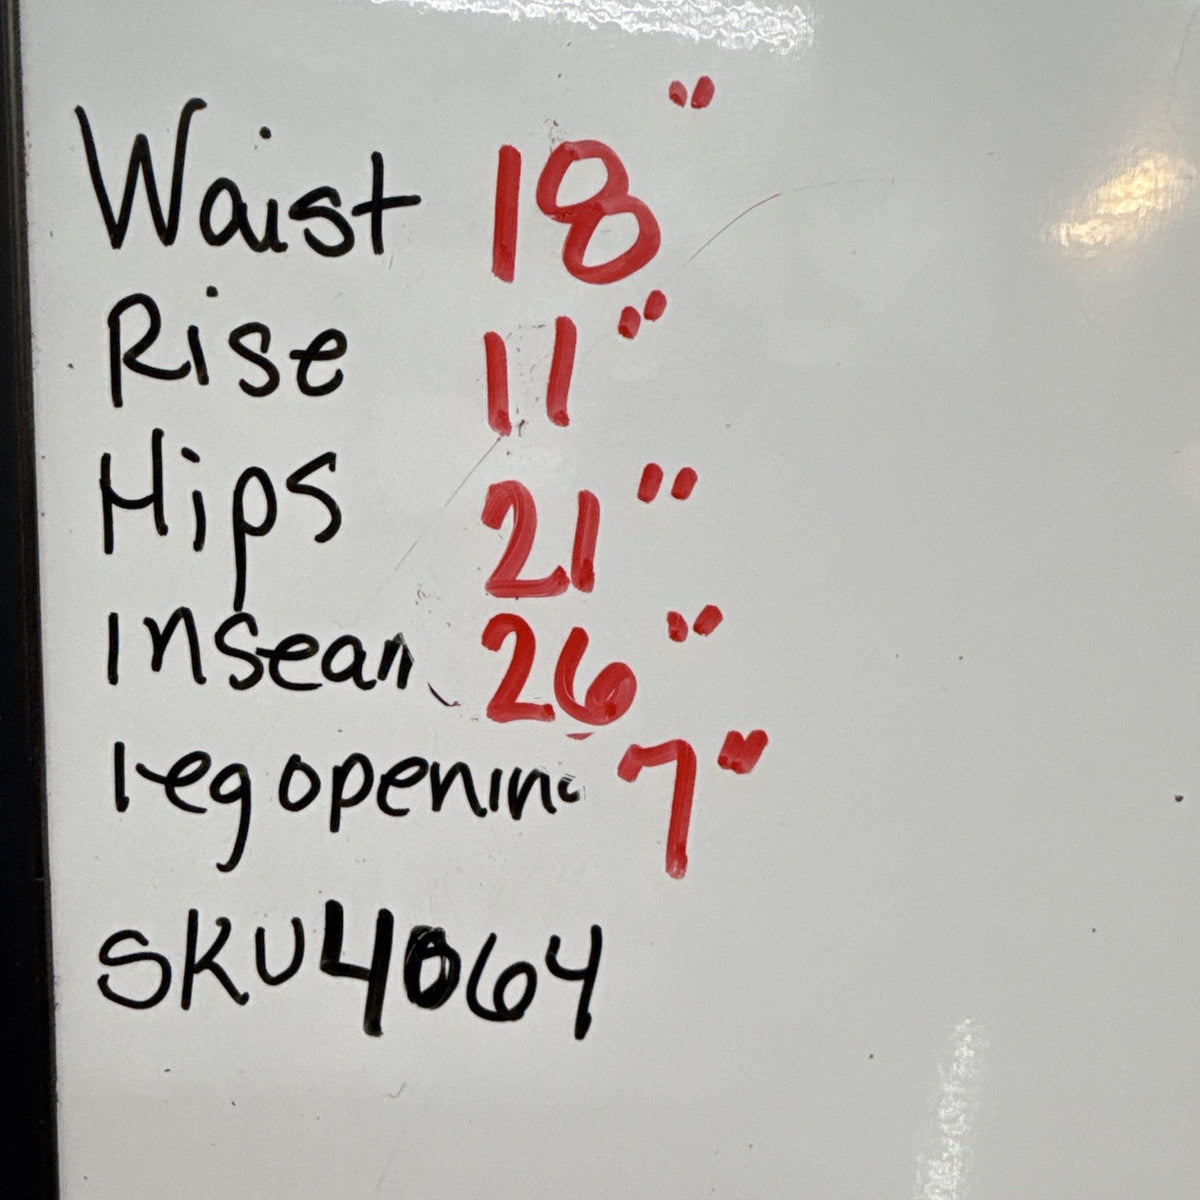 Waist 18"
Rise 11"
Hips 21"
Inseam 26"
leg opening 7"
SKU 4064